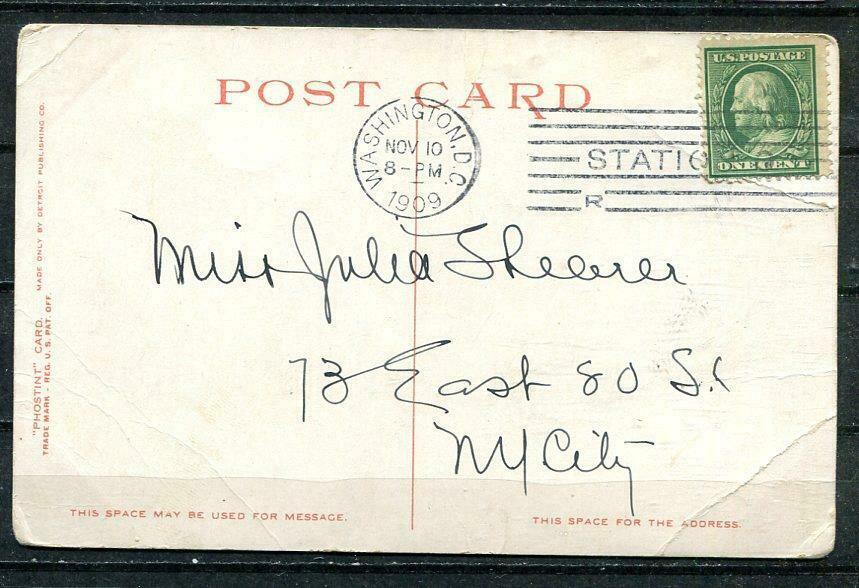 POST CARD
WASHINGTON, D.C.
NOV 10
8-PM
1909
STATIO
R
U.S. POSTAGE
ONE CENT
Miss Julia Shearer
73 East 80 St
NY City
"PHOSTINT" CARD. MADE ONLY BY DETROIT PUBLISHING CO.
TRADE MARK - REG. U.S. PAT. OFF.
THIS SPACE MAY BE USED FOR MESSAGE.
THIS SPACE FOR THE ADDRESS.